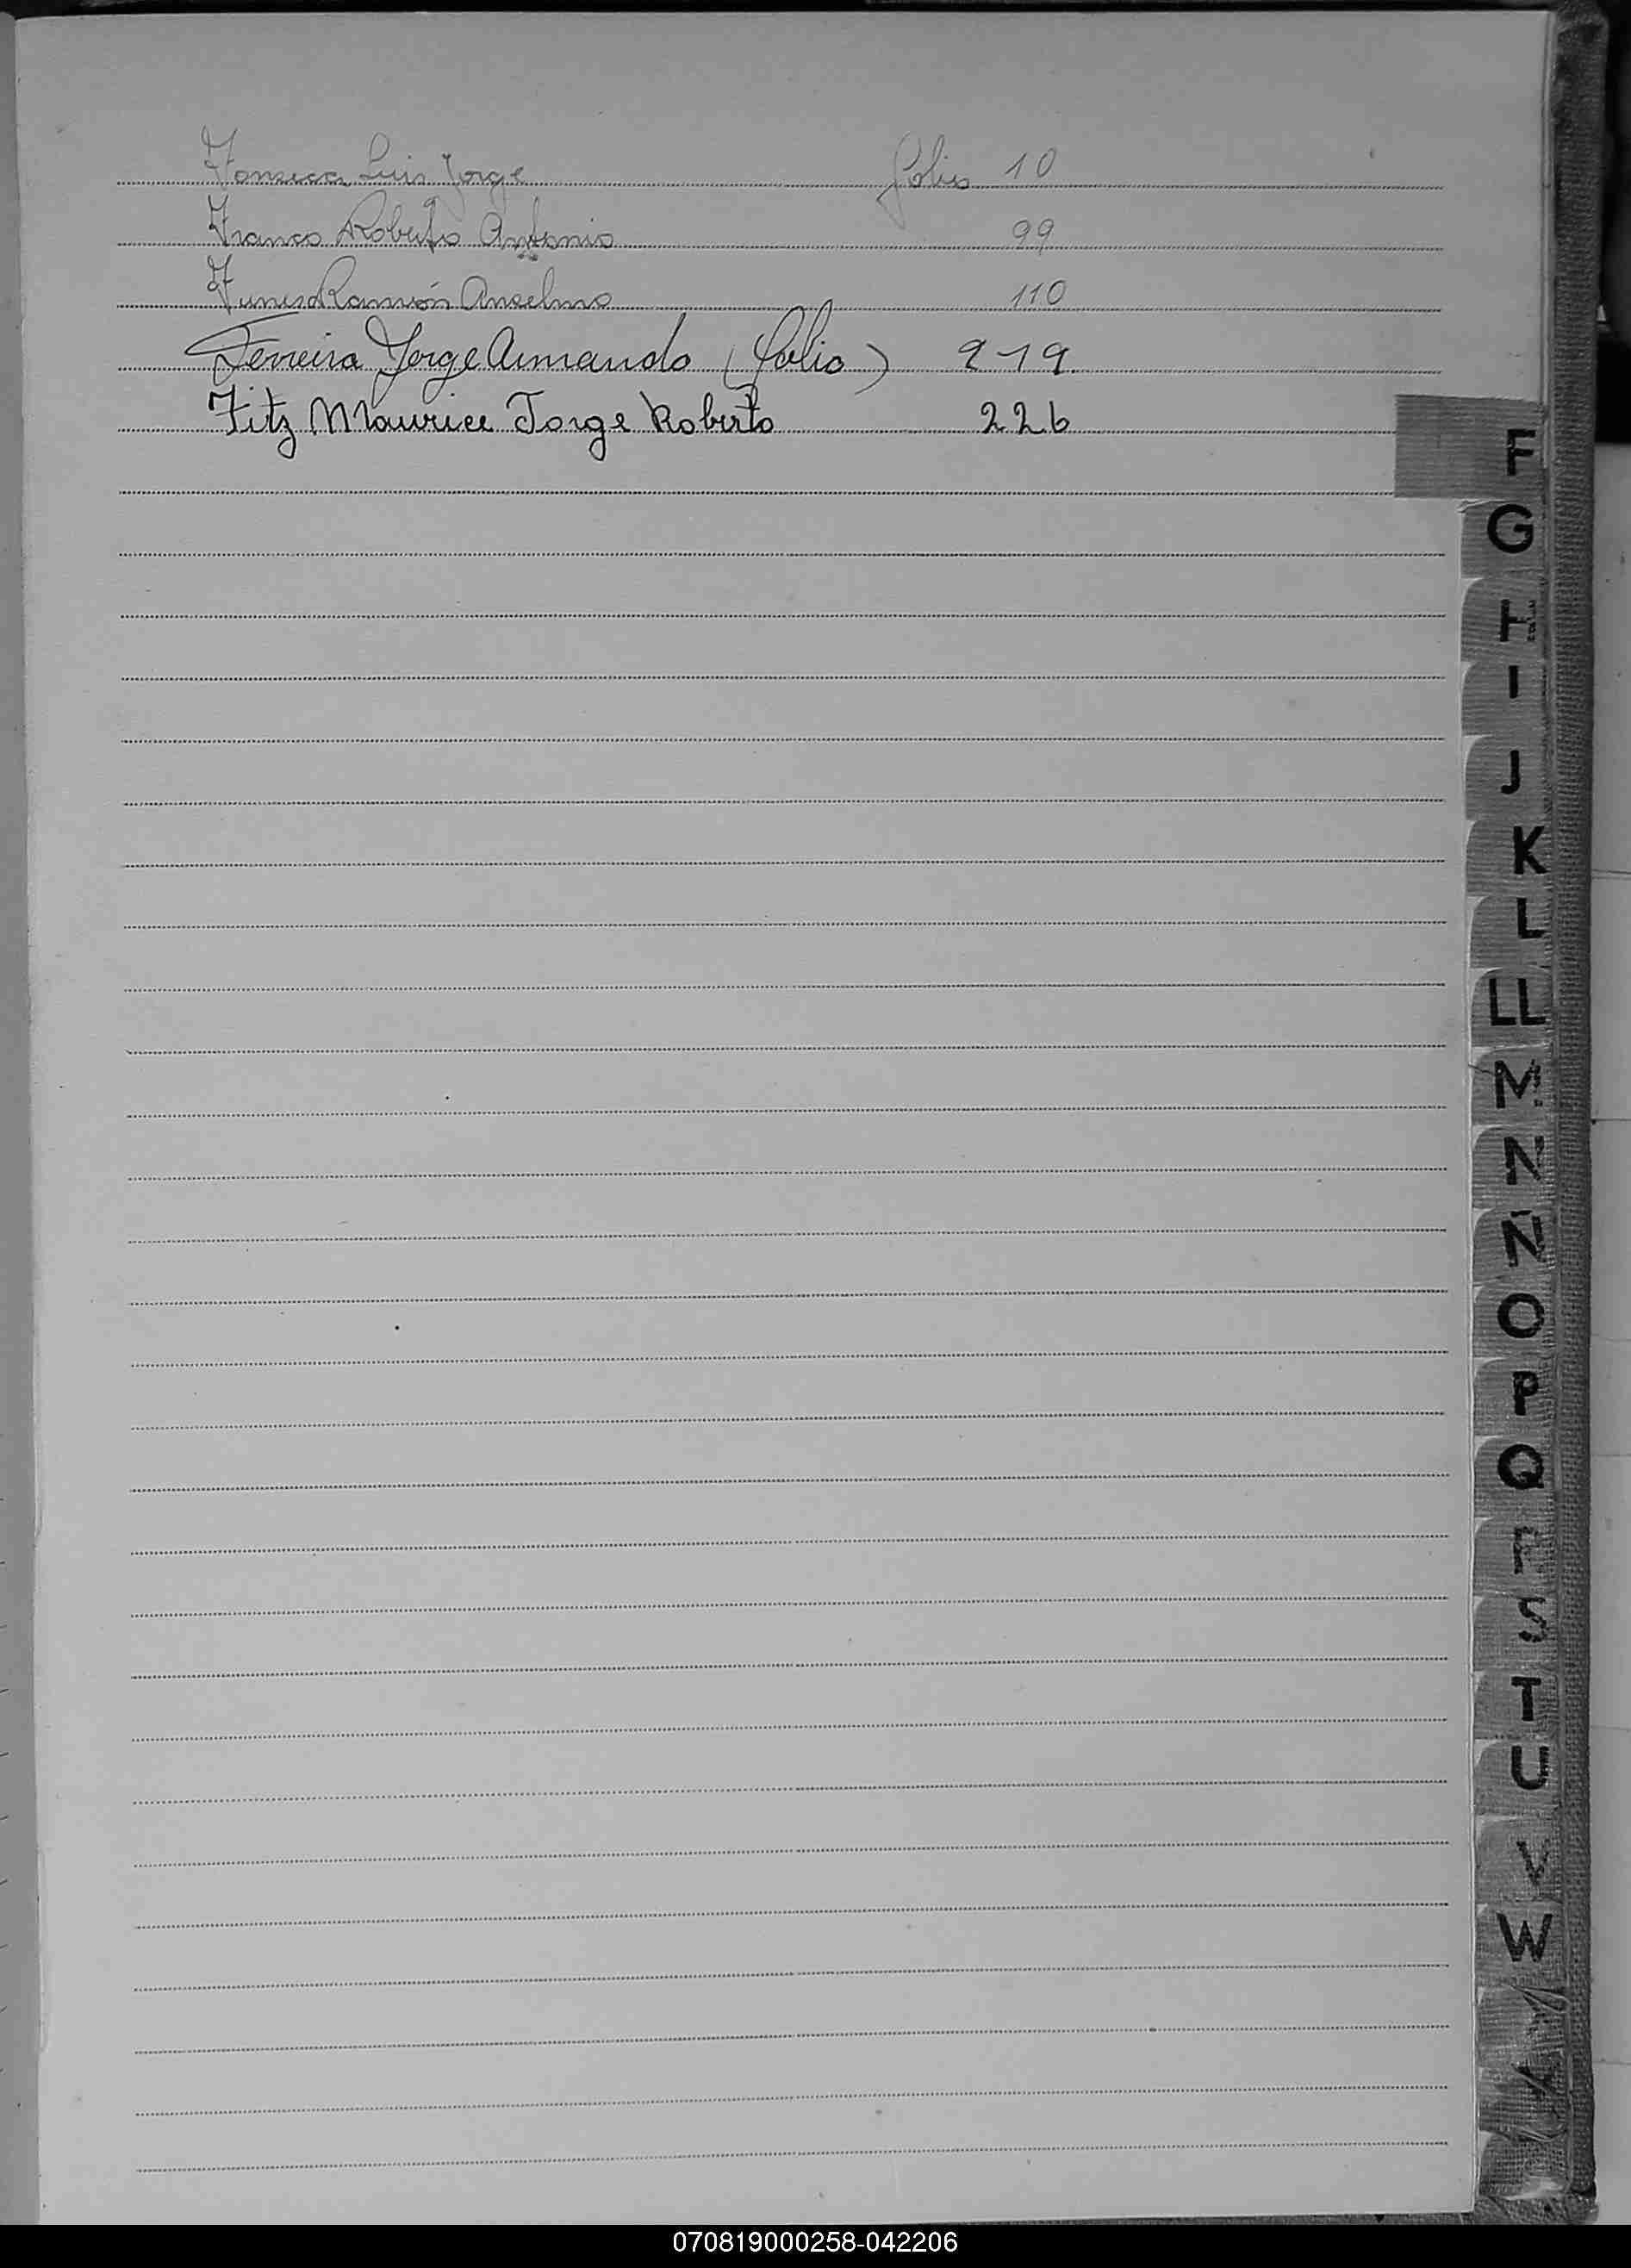 Fonseca Luis Jorge folio 10
Franco Roberto Antonio 99
Funes Ramón Anselmo 110
Ferreira Jorge Armando (folio) 219.
Fitz Maurice Jorge Roberto 226
F
G
H
I
J
K
L
LL
M
N
Ñ
O
P
Q
R
S
T
U
V
W
070819000258-042206